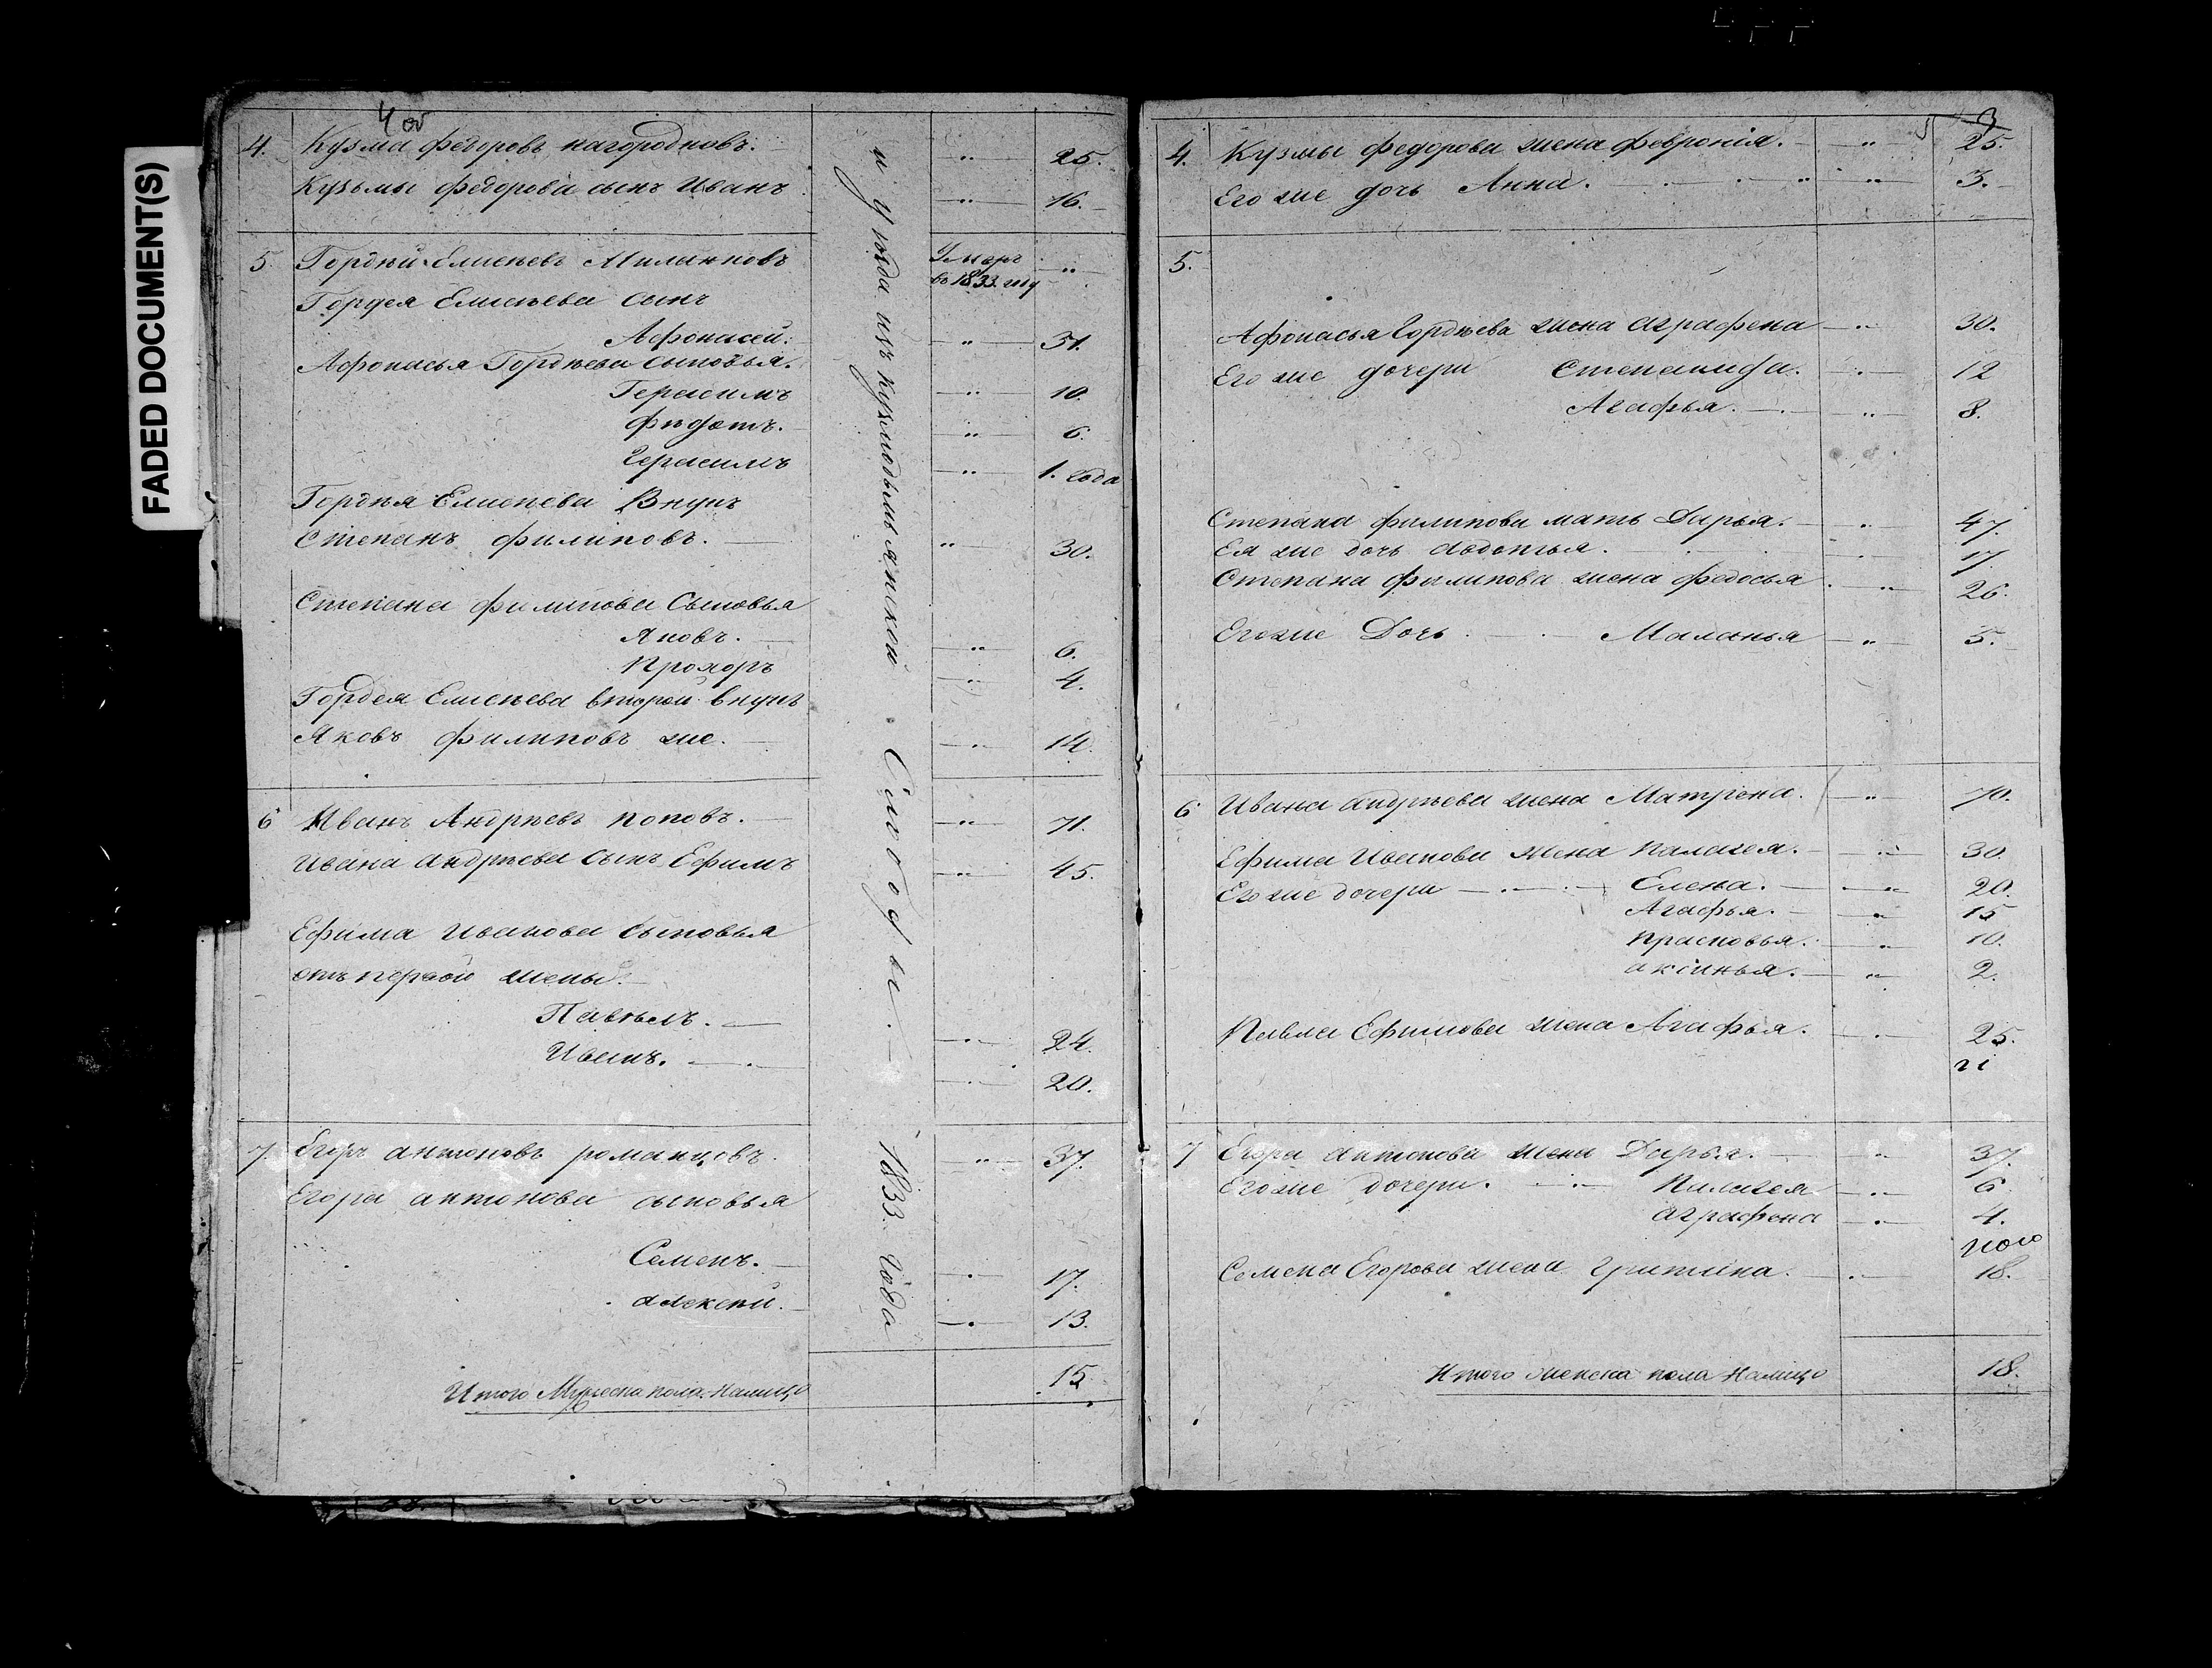 FADED DOCUMENT(S)
4 об
4. Кузма федоровъ нагородновъ. " 25.
Кузьмы федорова сынъ Иванъ " 16.
5 Гордѣй Елисѣевъ Умеръ въ 1833 году "
Гордея Елисѣева сынъ
Афонасей: " 31.
Афонасья Гордѣева сыновья.
Герасимъ " 10.
Федотъ. " 6.
Герасимъ " 1. года
Гордѣя Елисѣева Внукъ
Степанъ филиповъ. " 30.
Степана филипова Сыновья
Яковъ. " 6.
Прохоръ " 4.
Гордея Елисѣева второй внукъ
Яковъ филиповъ же. " 14.
6 Иванъ Андрѣевъ поповъ. " 71.
Ивана андрѣева сынъ Ефимъ " 45.
Ефима Иванова сыновья
отъ первой жены.
Павѣлъ. " 24.
Иванъ. " 20.
7. Егоръ антоновъ романцовъ. " 37.
Егора антонова сыновья
Семенъ. " 17.
алексей. " 13.
Итого Мужеска пола налицо 15
уѣзда изъ Слободы. 1833 года
3
4. Кузмы федорова жена феврония. " 25.
Его же дочь Анна. " 3.
5.
Афонасья Гордѣева жена аграфена " 30.
Его же дочери Степанида. " 12
Агафья. " 8.
Степана филипова мать Дарья. " 47.
Ея же дочь авдотья. " 17.
Степана филипова жена федосья " 26.
Его же Дочь Маланья " 5.
6 Ивана андрѣева жена Матрена. " 70.
Ефима Иванова жена палагея. " 30.
Его же дочери Елена. " 20.
Агафья. " 15
прасковья. " 10.
аксинья. " 2.
Павла Ефимова жена Агафья. " 25.
21
7 Егора антонова жена Дарья. " 37.
Его же дочери. Палагея " 6
аграфена " 4.
Семена Егорова жена Улитина. " 18.
Итого женска пола налицо 18.